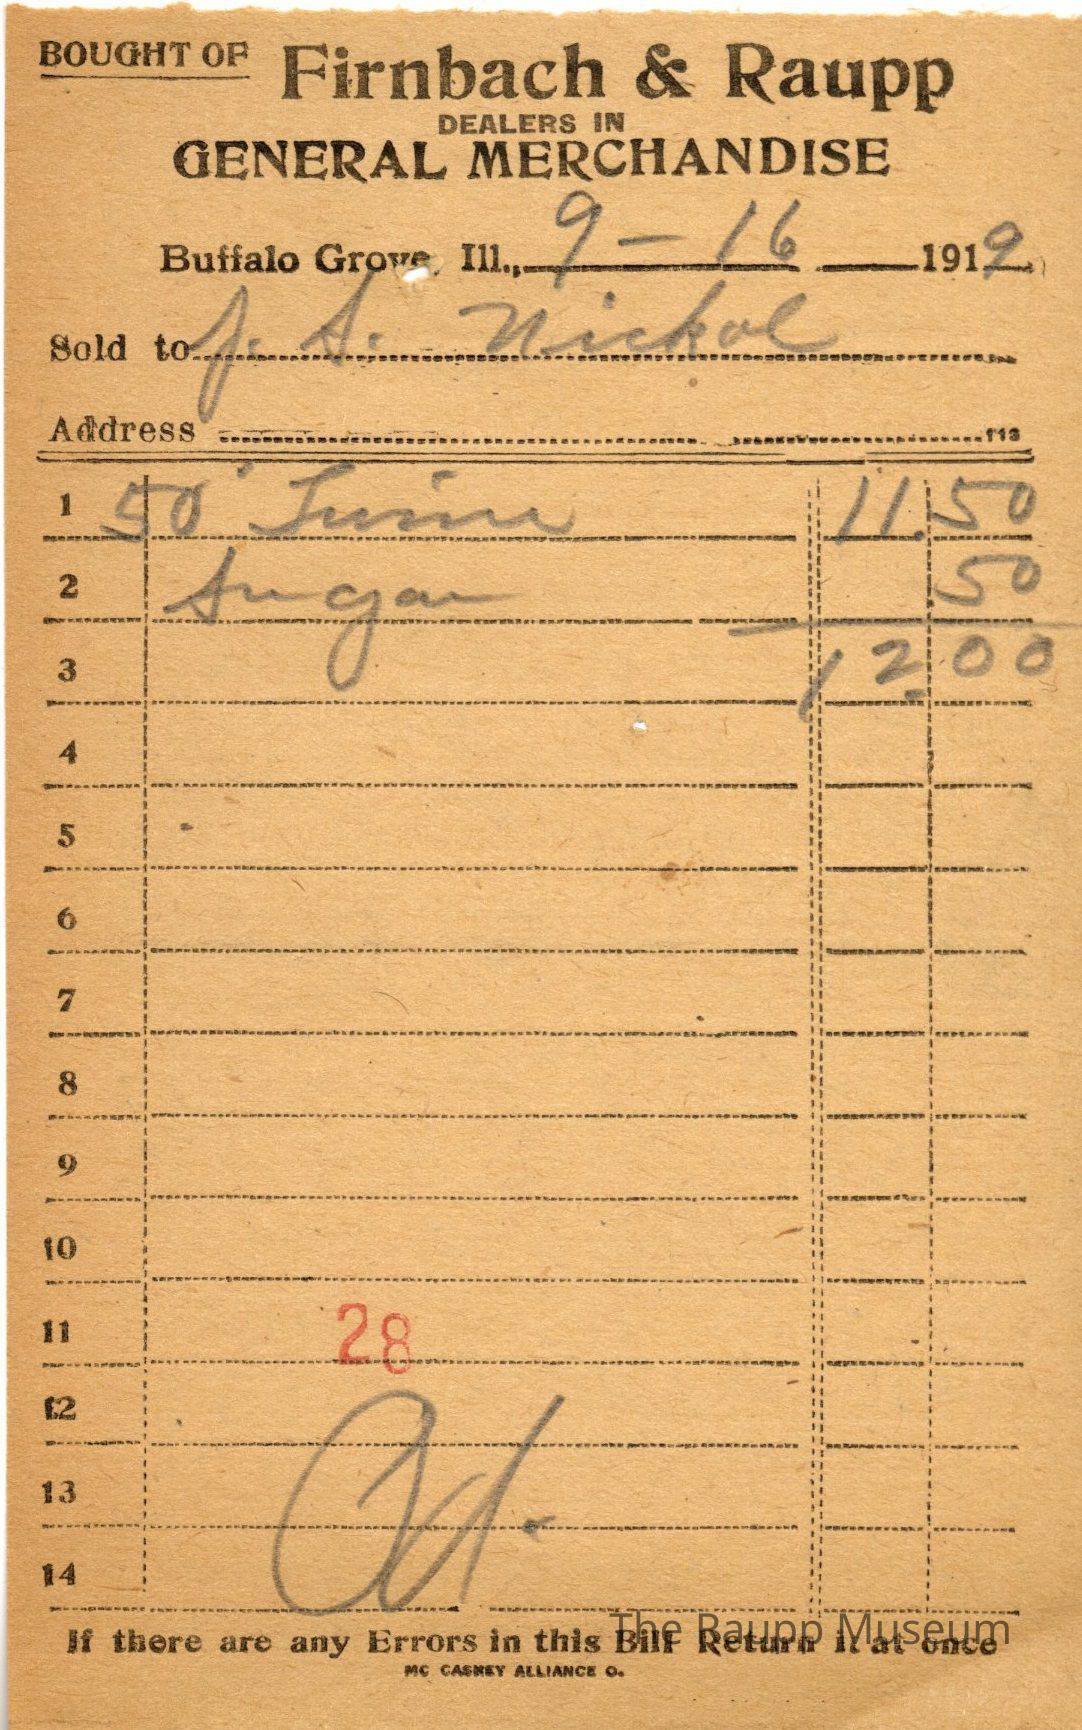 BOUGHT OF Firnbach & Raupp
DEALERS IN
GENERAL MERCHANDISE
Buffalo Grove, Ill., 9 - 16 1919
Sold to J. S. Nickol
Address 113
1 50 11.50
2 Sugar 50
3 12.00
4
5
6
7
8
9
10
11 28
12
13
14
The Raupp Museum
If there are any Errors in this Bill Return it at once
MC CASKEY ALLIANCE O.